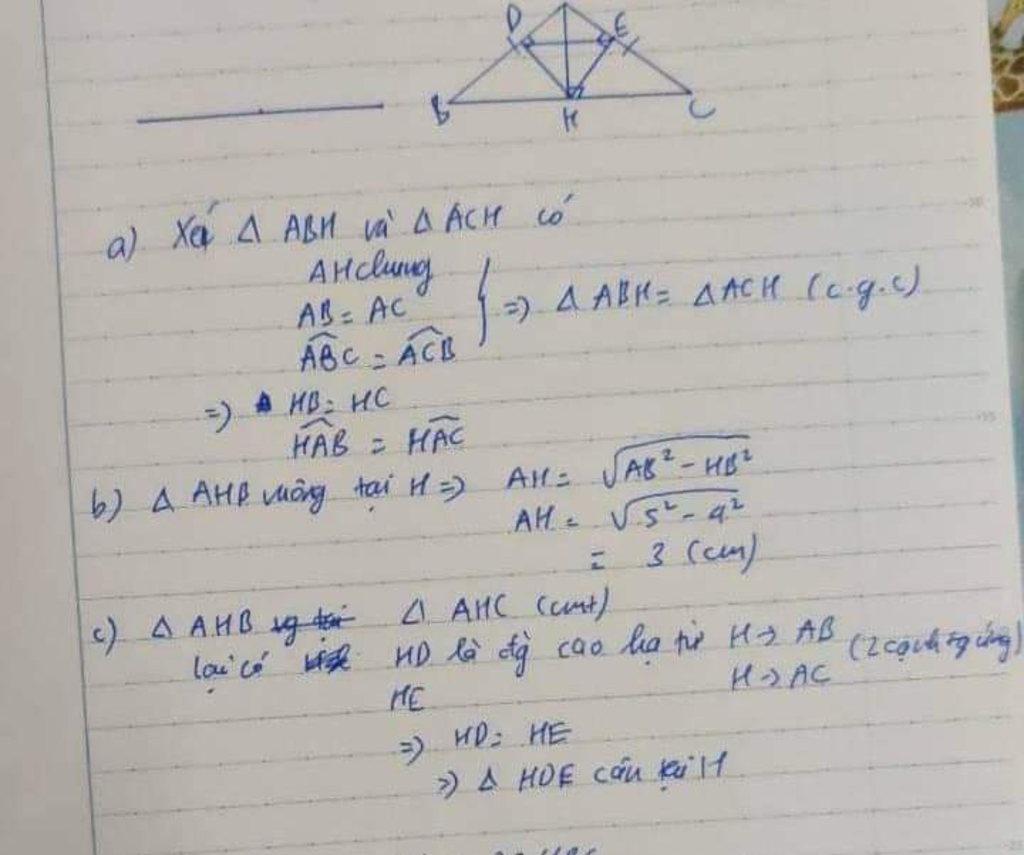 D E
B H C
a) Xét Δ ABH và Δ ACH có
AH chung
AB = AC
ABC = ACB
} => Δ ABH = Δ ACH (c.g.c)
=> HB = HC
HAB = HAC
b) Δ AHB vuông tại H => AH = √AB² - HB²
AH = √5² - 4²
= 3 (cm)
c) Δ AHB Δ AHC (cmt)
lại có HD là đg cao hạ từ H -> AB (2 cạnh tg ứng)
HE H -> AC
=> HD = HE
=> Δ HDE cân tại H